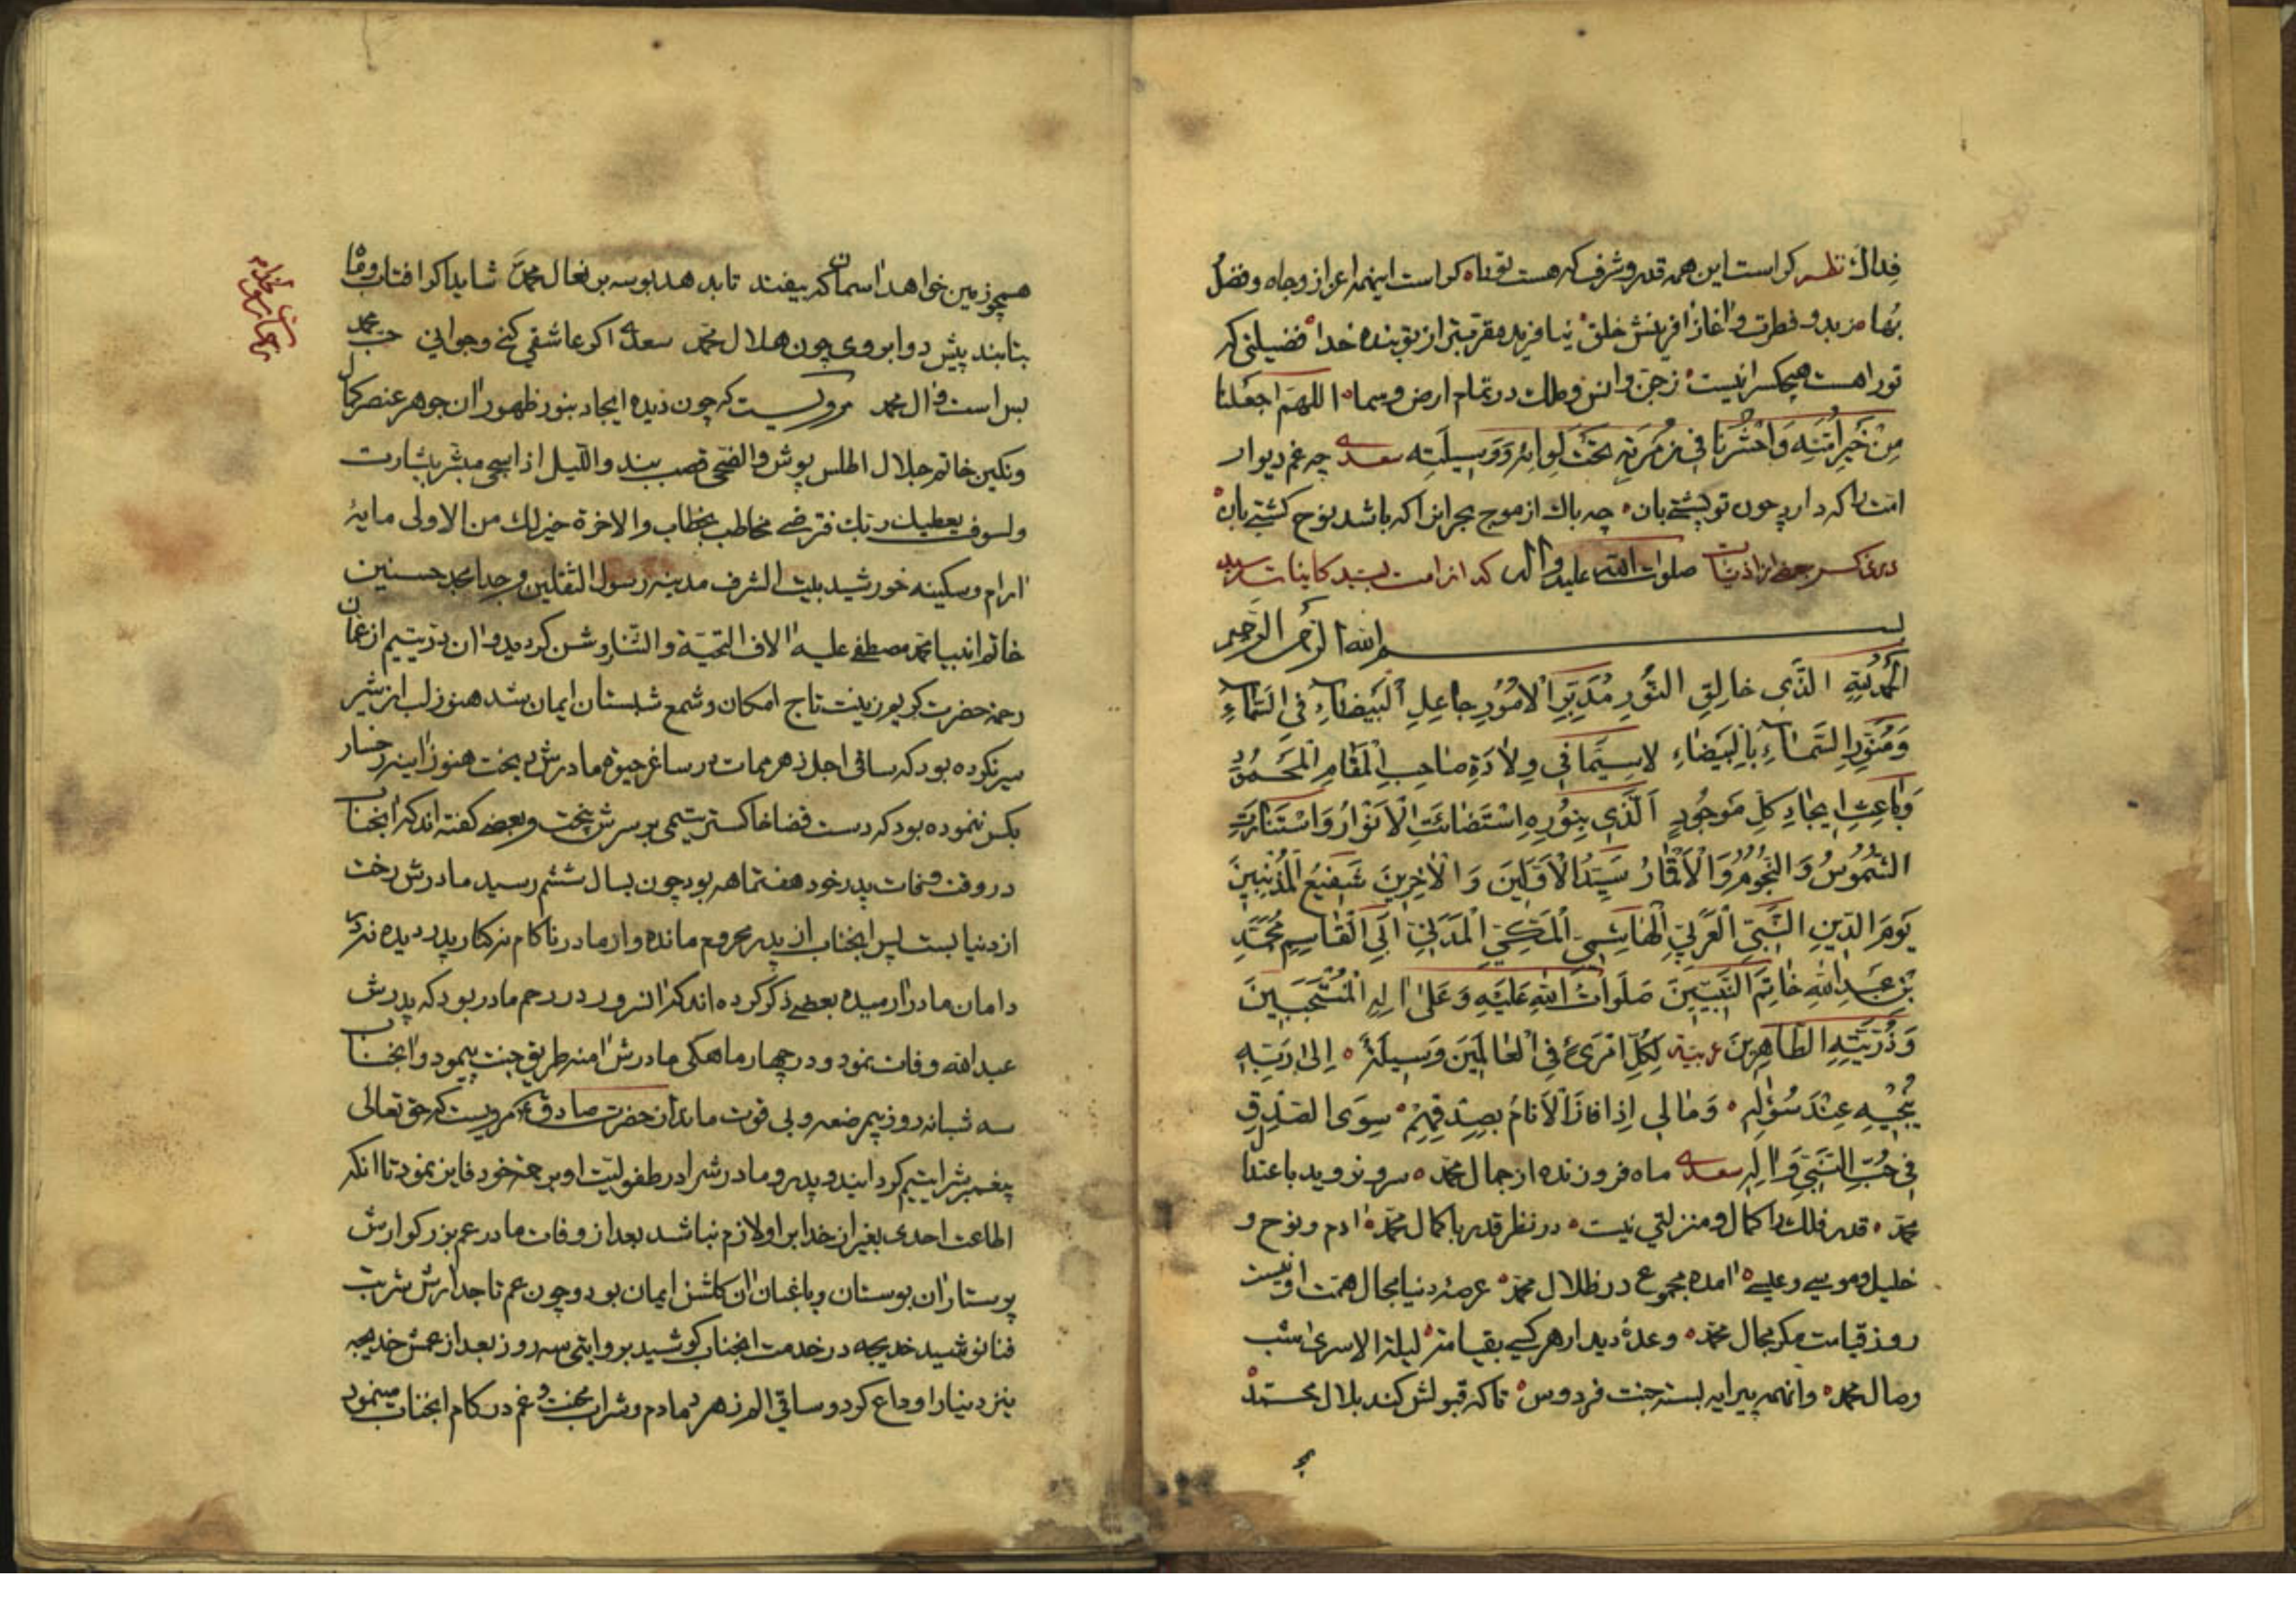 فداك نظم کراست این همه قدر و شرف که هست تو را کراست اینهمه اعزاز و جاه و فضل
بها مزید و فطرت و اغاز افرینش خلق نیافرید مقربتر از تو بنده خدا فضیلتی که
تو راهست هیچکس را نیست زجن و انس و ملك در تمام ارض و سما اللهم اجعلنا
مِنْ خَيرِ اُمَّتِهِ وَاحْشُرْنا فی زُمْرَتِهِ تحَتَ لِوائِهِ وَوَسیلَتِه سعدی چه غم دیوار
امت را که دارد چون تو پشتیبان چه باك از موج بحر انرا که باشد نوح کشتی بان
در ذکر صلوات الله علیه و اله که از امت سید کاینات
بسم الله الرحمن الرحیم
اَلْحَمْدُ لِلّٰهِ الَّذی خالِقِ النُّورِ مُدَبِّرِ الْاُمُورِ جاعِلِ الْبَیْضاءِ فِی السَّماءِ
وَمُنَوِّرِ السَّماءِ بِالْبَیْضاءِ لاسِیَّما فی وِلادَةِ صاحِبِ الْمَقامِ الْمَحْمُودِ
وَباعِثِ ایجادِ کُلِّ مَوجُودٍ اَلَّذی بِنُورِهِ اسْتَضائَتِ الْاَنْوارُ وَاسْتَنارَتِ
الشُّمُوسُ وَالنُّجُومُ وَالْاَقْمارُ سَیِّدُ الْاَوَّلینَ وَالْاخِرینَ شَفیعُ الْمُذْنِبینَ
یَومَ الدّینِ النَّبِیِّ الْعَرَبِیِّ الْهاشِمِیِّ الْمَکِّیِّ الْمَدَنِیِّ اَبِی الْقاسِمِ مُحَمَّدِ
بْنِ عَبْدِ اللهِ خاتِمِ النَّبِیّینَ صَلَواتُ اللهِ عَلَیْهِ وَعَلیٰ الِهِ الْمُنْتَجَبینَ
وَذُرِّیَّتِهِ الطّاهِرینَ عربیة لِکُلِّ امْرَیءٍ فِی الْعالَمینَ وَسیلَةٌ اِلیٰ رَبِّهِ
یُنْجیهِ عِنْدَ سُؤلِهِ وَمالی اِذا فازَ الْاَنامُ بِصِدْقِهِمْ سِوَی الصِّدْقِ
فی حُبِّ النَّبِیِّ وَالِهِ سعدی ماه فروزنده از جمال محمد سرو نروید باعتدال
محمد قدر فلك را کمال و منزلتی نیست در نظر قدر با کمال محمد ادم و نوح و
خلیل و موسی و عیسی امده مجموع در ظلال محمد عرصهٔ دنیا مجال همت او نیست
روز قیامت مکر مجال محمد وعدهٔ دیدار هر کسی بقیامت لیلة الاسری شب
وصال محمد وانهمه پیرایه بسته جنت فردوس تا که قبولش کند بلال محمد
همچو زمین خواهد اسمان که بیفتد تا بدهد بوسه بر نعال محمد شاید اکر افتاب و ماه
نتابند پیش دو ابروی چون هلال محمد سعدی اکر عاشقی کنی و جوانی حب محمد
بس است و ال محمد مرویست که چون دیده ایجاد بنور ظهور ان جوهر عنصر کمال
ونکین خاتم جلال اطلس پوش والضحی قصب بند واللیل اذا سجی مبشر بشارت
ولسوف یعطیك ربك فترضی مخاطب بخطاب والاخرة خیر لك من الاولی مایهٔ
ارام و سکینه خورشید بیت الشرف مدینه رسول الثقلین و جد امجد حسنین
خاتم انبیا محمد مصطفی علیه الاف التحیة والثنا روشن کردید و ان در یتیم از عمان
رحمة حضرت کریم زینت تاج امکان و شمع شبستان ایمان شد هنوز لب از شیر
سیر نکرده بود که ساقی اجل زهر ممات در ساغر حیوة مادرش ریخت هنوز اینه رخسار
بکس ننموده بود که دست قضا خاکستر یتیمی بر سرش بیخت و بعضی کفته اند که انجناب
در وقت وفات پدر خود هفتماهه بود چون بسال ششم رسید مادرش رخت
از دنیا بست پس انجناب از پدر محروم مانده و از مادر ناکام نه کنار پدر دیده نه در
دامان مادر ارمیده بعضی ذکر کرده اند که انسرور در رحم مادر بود که پدرش
عبد الله وفات نمود و در چهار ماهکی مادرش امنه طریق جنت پیمود و انجناب
سه شبانه روز بیمرضعه و بی قوت ماند از حضرت صادق ع مرویست که حق تعالی
پیغمبرش را یتیم کردانید و پدر و مادرش را در طفولیت او برحمة خود فایز نمود تا انکه
اطاعت احدی بغیر از خدا بر او لازم نباشد بعد از وفات مادر عم بزرکوارش
پرستار ان بوستان و باغبان ان کلشن ایمان بود و چون عم تاجدارش شربت
فنا نوشید خدیجه در خدمت انجناب کوشید بروایتی سه روز بعد از عمش خدیجه
نیز دنیا را وداع کرد و ساقی الم زهر دمادم و شراب محنت و غم در کام انجناب مینمود